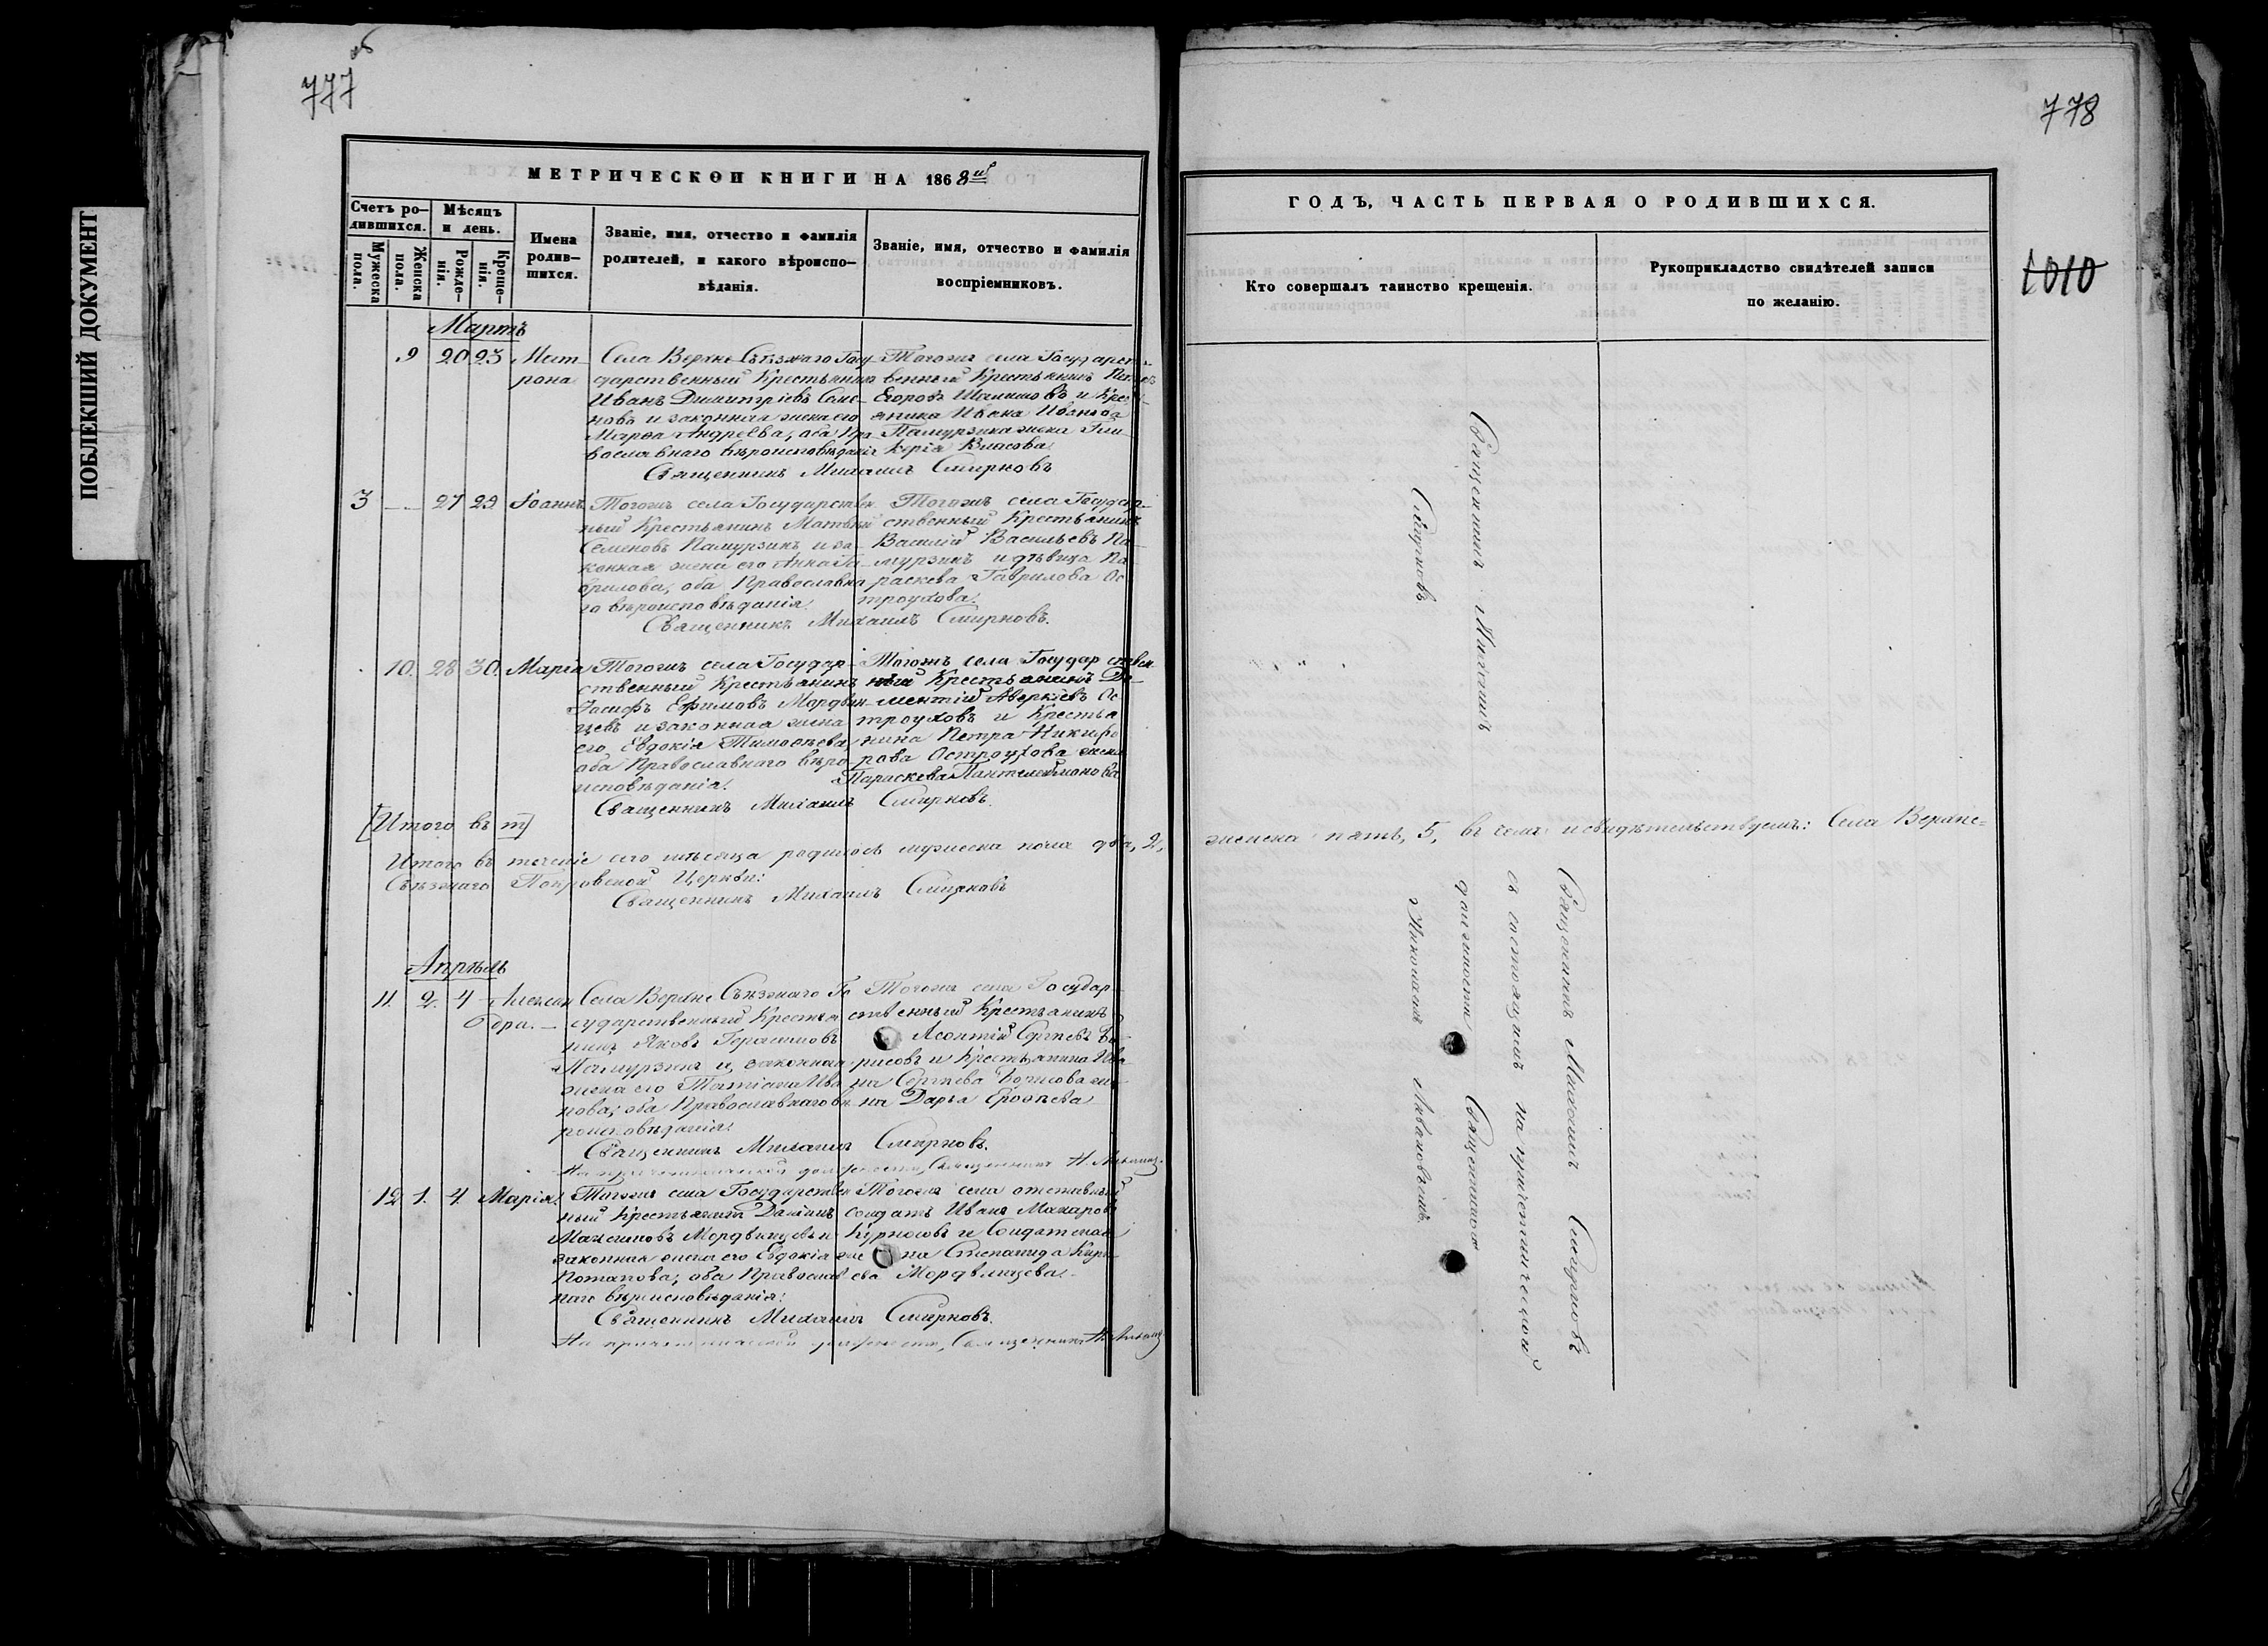 ПОБЛЕКШИЙ ДОКУМЕНТ
777 об
МЕТРИЧЕСКОЙ КНИГИ НА 1868 й
Счетъ ро-
дившихся.
Мѣсяцъ
и день.
Мужеска
пола.
Женска
пола.
Рожде-
нія.
Креще-
нія.
Имена
родив-
шихся.
Званіе, имя, отчество и фамилія
родителей, и какого вѣроиспо-
вѣданія.
Званіе, имя, отчество и фамилія
воспріемниковъ.
Мартъ
9 20 23 Мат-
рона
Села Верхне-Съѣзжаго Госу-
дарственный Крестьянинъ
Иванъ Димитріевъ Семе-
новъ и законная жена его
Марѳа Андреева, оба Пра-
вославнаго вѣроисповѣданія
Тогожъ села Государст-
венный Крестьянинъ Петръ
Егоровъ и Крес-
янина Ивана Иванова
Памурзина жена Гли-
керія Власова
Священникъ Михаилъ Смирновъ
3 - 27 29 Іоаннъ
Тогожъ села Государствен-
ный Крестьянинъ Матвѣй
Семеновъ Памурзинъ и за-
конная жена его Анна Га-
врилова, оба Православна
го вѣроисповѣданія.
Тогожъ села Государ-
ственный Крестьянинъ
Василій Васильевъ Па-
мурзинъ и дѣвица Па-
раскева Гаврилова Ос
троухова.
Священникъ Михаилъ Смирновъ.
10. 28 30. Марія
Тогожъ села Государ-
ственный Крестьянинъ
Іосифъ Ефимовъ Мордвин-
цевъ и законная жена
его Евдокія Тимоѳеева
оба Православнаго вѣро
исповѣданія.
Тогожъ села Государствен
ный Крестьянинъ Де-
ментій Аверкіевъ Ос
троуховъ и Крестья
нина Петра Никифо
рова Остроухова жена
Параскева Пантелеймонова
Священникъ Михаилъ Смирновъ.
[Итого въ т]
Итого въ теченіе сего мѣсяца родилось мужеска пола два, 2,
Съѣзжаго Покровской Церкви:
Священникъ Михаилъ Смирновъ
Апрѣль
11. 2. 4 Алексан
дра. -
Села Верхне-Съѣзжаго Го
сударственный Крестья
нинъ Яковъ Герасимовъ
Памурзинъ и законная
жена его Татіана Ива
нова; оба Православнаго вѣ
роисповѣданія.
Тогожъ села Государ-
ственный Крестьянинъ
Леонтій Сергѣевъ Бо-
рисовъ и Крестьянина Ива
на Сергѣева Борисова же-
на Дарья Ероѳѣева
Священникъ Михаилъ Смирновъ.
На причетнической должности, Священникъ Н.
12 1. 4 Марія.
Тогожъ села Государствен
ный Крестьянинъ Даніилъ
Максимовъ Мордвинцевъ и
законная жена его Евдокія
Потапова; оба Православ
наго вѣроисповѣданія:
Тогожъ села отставный
солдатъ Иванъ Макаровъ
Курносовъ и Солдатская
жена Степанида
ева Мордвинцева.
Священникъ Михаилъ Смирновъ.
На причетнической должности, Священникъ Н.
778
1010
ГОДЪ, ЧАСТЬ ПЕРВАЯ О РОДИВШИХСЯ.
Кто совершалъ таинство крещенія.
Рукоприкладство свидѣтелей записи
по желанію.
Священникъ Михаилъ
Смирновъ
женска пять, 5, въ чемъ и свидѣтельствуемъ: Села Верхне-
Священникъ Михаилъ Смирновъ
съ состоящимъ на причетнической
должности Священникомъ
Николаемъ Ливановымъ.